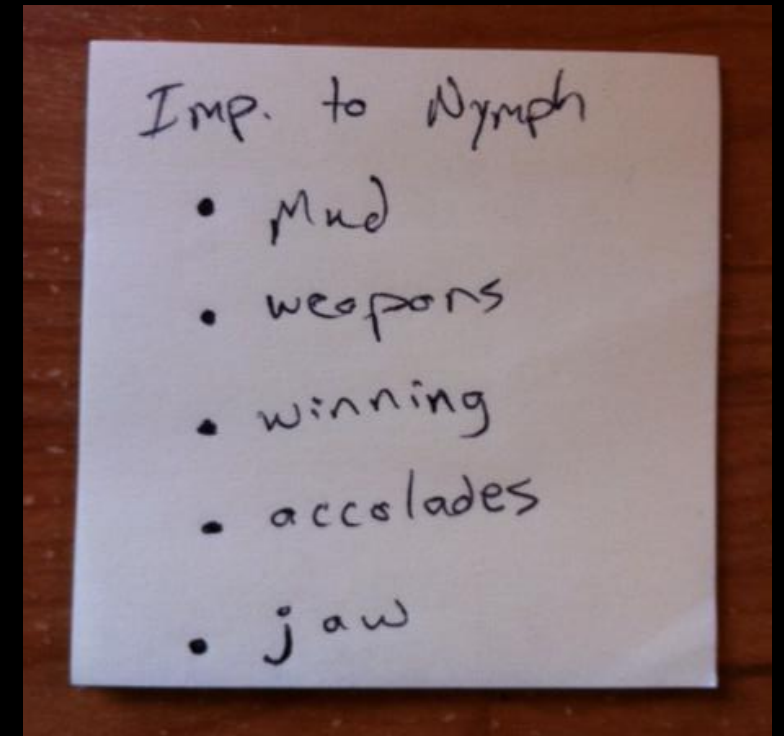 Imp. to Nymph
• Mud
• weapons
• winning
• accolades
• jaw